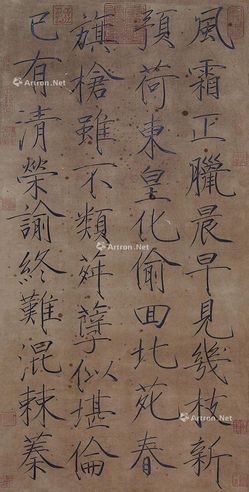 風霜正臘晨早見幾枝新
預荷東皇化偷回北苑春
旗槍雖不類荈孽似堪倫
已有清榮諭終難混棘蓁
Artron.Net
Artron.Net
Artron.Net
Artron.Net
Artron.Net